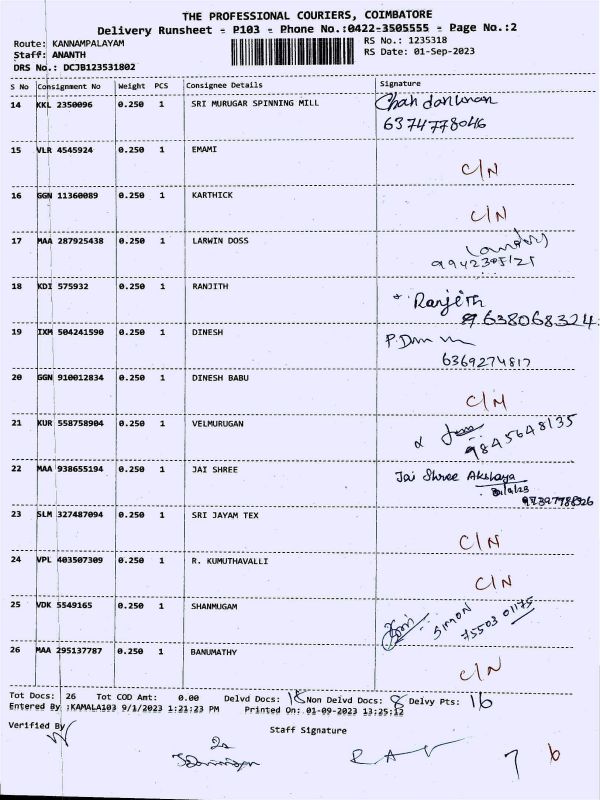 THE PROFESSIONAL COURIERS, COIMBATORE
Delivery Runsheet - P103 - Phone No.:0422-3505555 - Page No.:2
Route: KANNAMPALAYAM
RS No.: 1235318
Staff: ANANTH
RS Date: 01-Sep-2023
DRS No.: DCJB123531802
S No Consignment No Weight PCS Consignee Details Signature
14 KKL 2350096 0.250 1 SRI MURUGAR SPINNING MILL
6374778046
15 VLR 4545924 0.250 1 EMAMI
C/N
16 GGN 11360089 0.250 1 KARTHICK
C/N
17 MAA 287925438 0.250 1 LARWIN DOSS
18 KDI 575932 0.250 1 RANJITH
Ranjith
9638068324
19 IXM 504241590 0.250 1 DINESH
6369274817
20 GGN 910012834 0.250 1 DINESH BABU
C/N
21 KUR 558758904 0.250 1 VELMURUGAN
9845648135
22 MAA 938655194 0.250 1 JAI SHREE Jai Shree Akshaya
23 SLM 327487094 0.250 1 SRI JAYAM TEX
C/N
24 VPL 403507309 0.250 1 R. KUMUTHAVALLI
C/N
25 VDK 5549165 0.250 1 SHANMUGAM
SIMON
75503 01175
26 MAA 295137787 0.250 1 BANUMATHY
C/N
Tot Docs: 26 Tot COD Amt: 0.00 Delvd Docs: 18 Non Delvd Docs: 8 Delvy Pts: 16
Entered By :KAMALA103 9/1/2023 1:21:23 PM Printed On: 01-09-2023 13:25:12
Verified By
Staff Signature
7 6